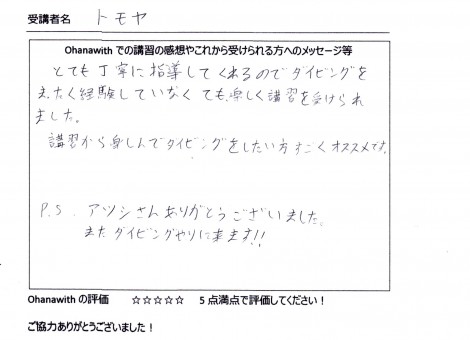 受講者名 トモヤ
Ohanawith での講習の感想やこれから受けられる方へのメッセージ等
とても丁寧に指導してくれるのでダイビングを
まったく経験していなくても楽しく講習を受けられ
ました。
講習から楽しんでダイビングをしたい方すごくオススメです。
P.S. アツシさんありがとうございました。
またダイビングやりに来ます!!
Ohanawith の評価 ☆☆☆☆☆ 5点満点で評価してください！
ご協力ありがとうございました！